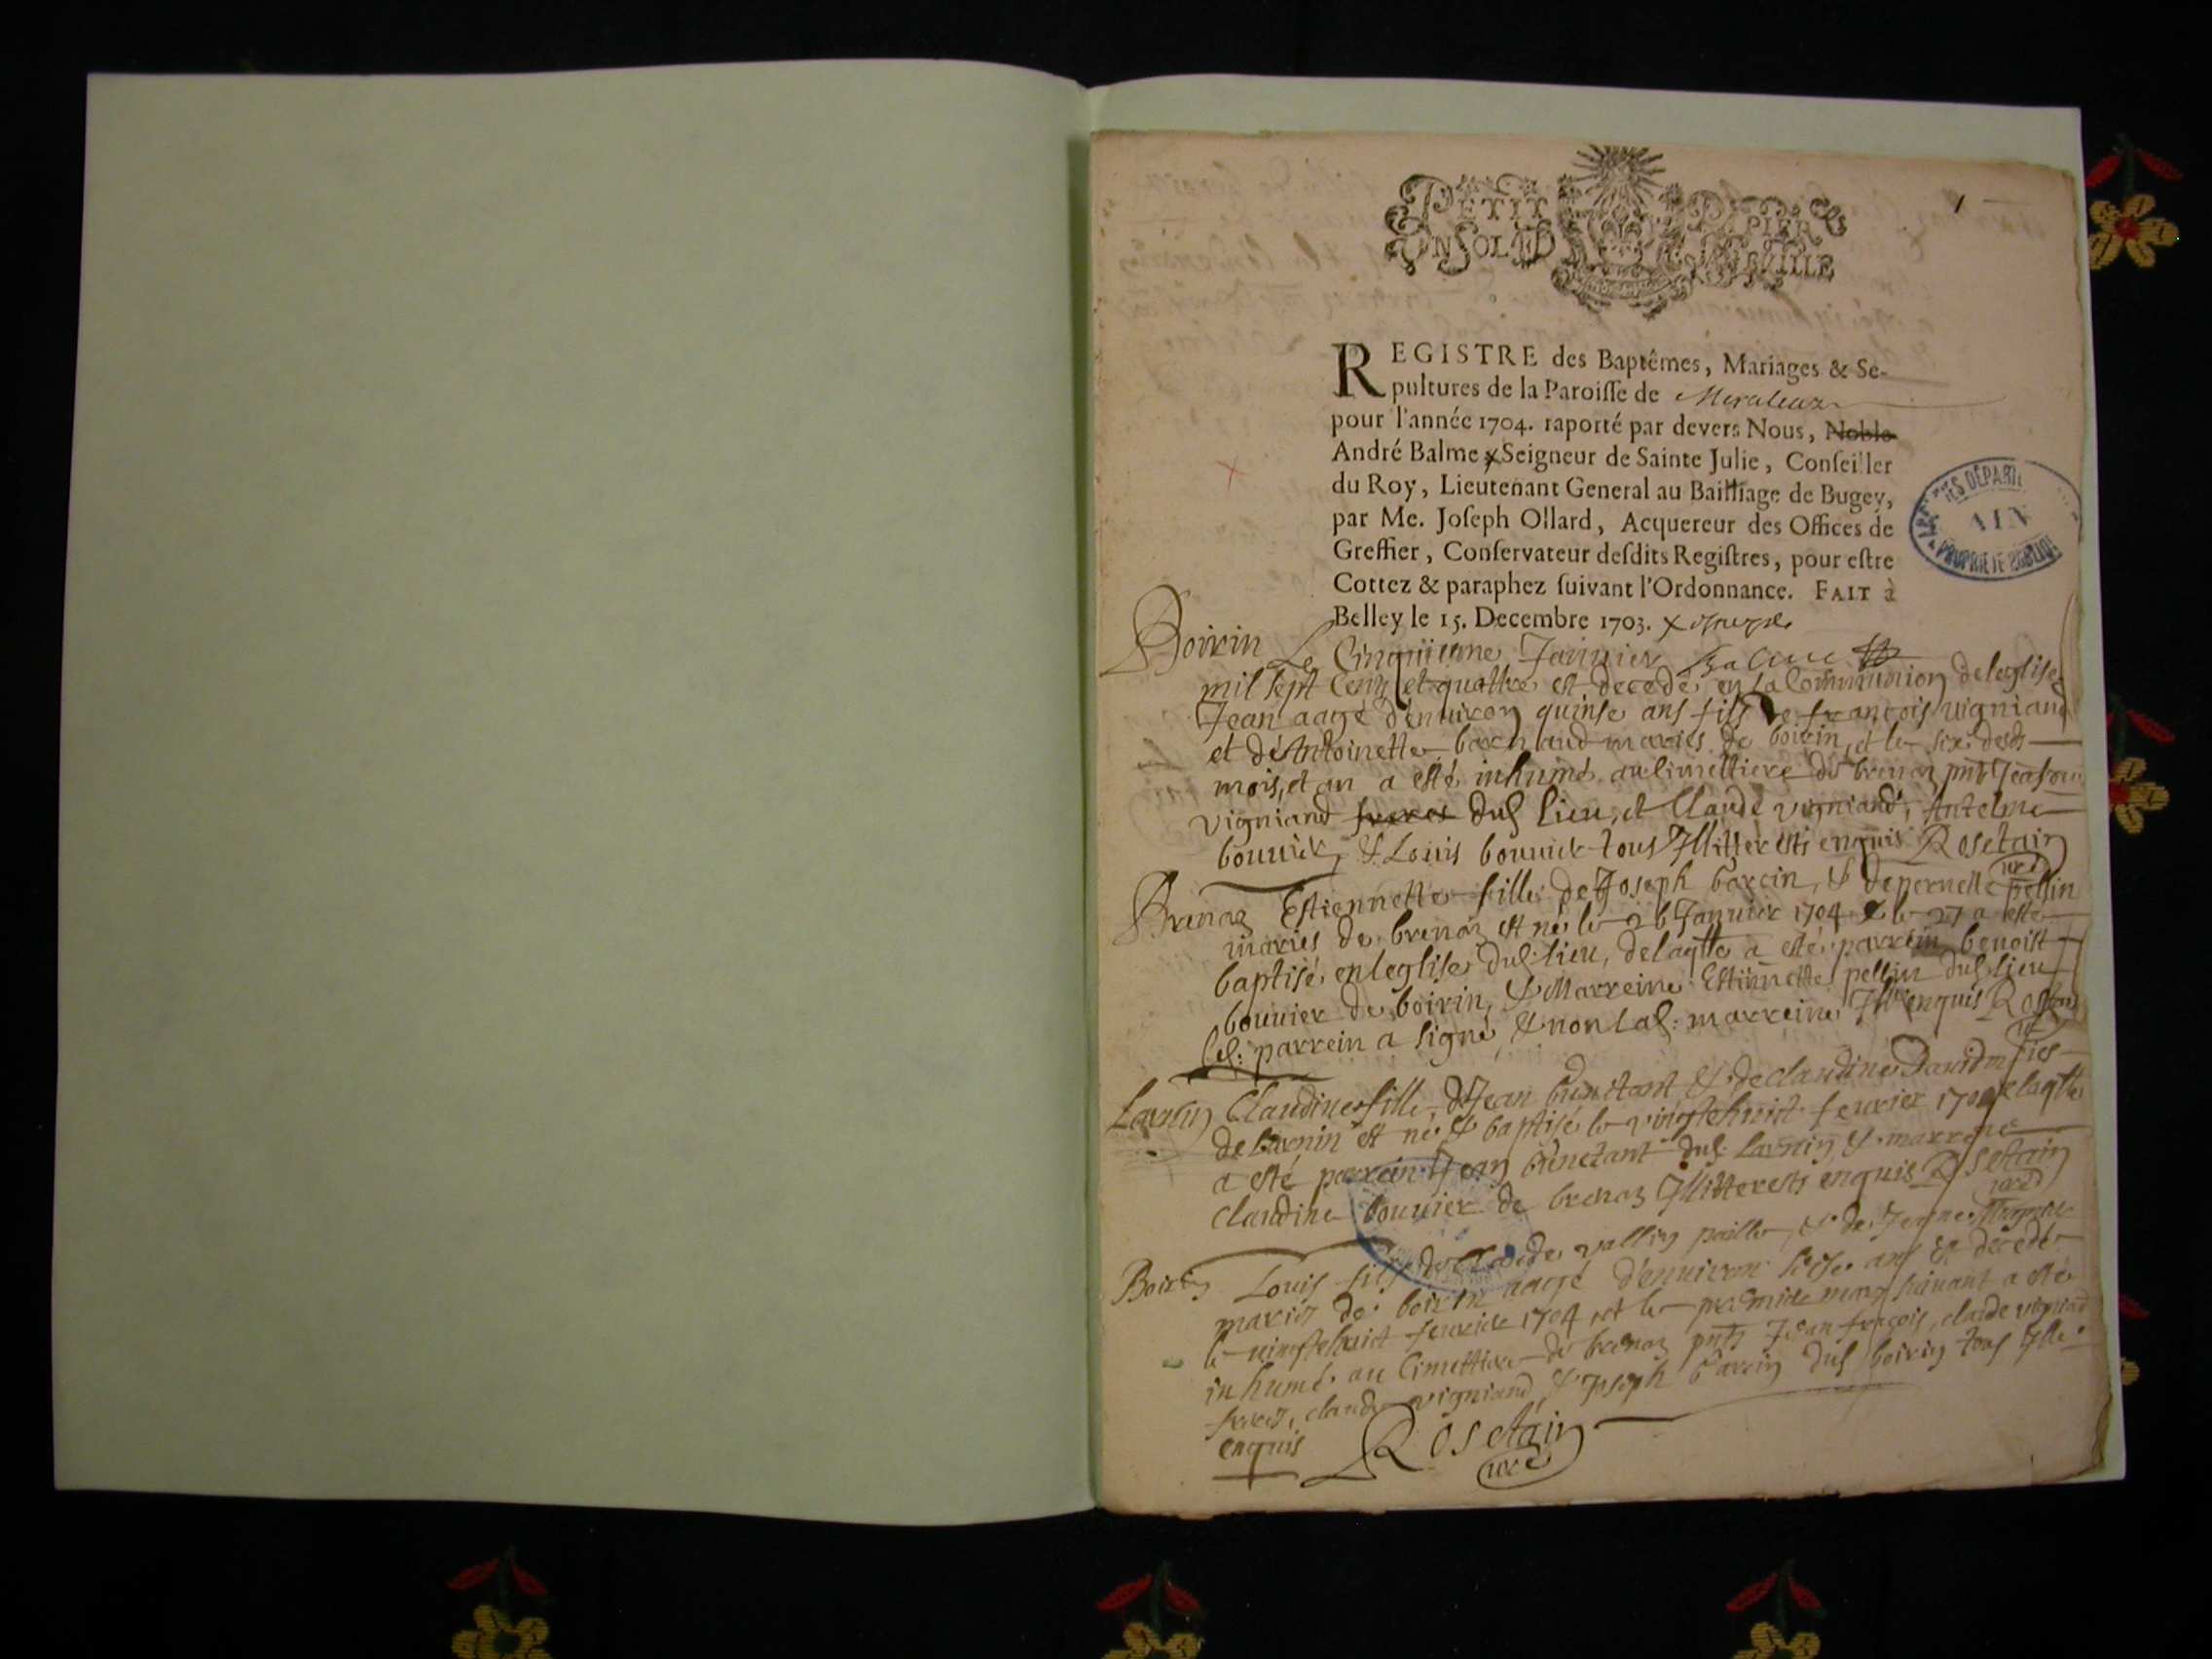 1
PETIT PAPIER
UN SOL LA FEUILLE
REGISTRE des Baptêmes, Mariages & Se-
pultures de la Paroisse de
pour l'année 1704. raporté par devers Nous, Noble
André Balme Seigneur de Sainte Julie, Conseiller
du Roy, Lieutenant General au Bailliage de Bugey,
par Me. Joseph Ollard, Acquereur des Offices de
Greffier, Conservateur desdits Registres, pour estre
Cottez & paraphez suivant l'Ordonnance. FAIT à
Belley le 15. Decembre 1703.
ARCHIVES DÉPARTE
AIN
PROPRIÉTÉ PUBLIQUE
Boirin Le Cinquieme Janvier Balme
mil sept Cens et quattre est decedé en la Communion de leglise
Jean aagé d'enuiron quinse ans fils de françois vigniand
et de Antoinette barnaud mariés de boirin, et le six desd
mois, et an a esté inhumé au Cimettiere de brenaz pnts
vigniand freres dud lieu, et Claude vigniand, Antelme
bouuier, & Louis bouuier tous Illitterests enquis Rosetain
Brenaz Estiennette fille de Joseph barcin, & de pernette pellin
mariés de brenaz est né le 26 Januier 1704 & le 27 a esté
baptisé en leglise dud. lieu, de laqtte a esté parrein benoist
bouuier de boirin, & Marreine Estiennette pellin dud lieu
led: parrein a signé, & non lad: marreine enquis
Lavnin Claudine fille de Jean & de claudine David
de est né & baptisé le vingtehuict feurier 1704
a esté parrein Jean dud. & marreine
claudine bouuier de brenaz Illitterests enquis Rosetain
Boirin Louis fils de Claude vallin & de
mariés de boirin aagé d'enuiron ans est decedé
le vingtehuict feurier 1704, et le premier mars suiuant a esté
inhumé au Cimettiere de brenaz pnts Jean françois, claude vigniand
freres, claude vigniand, & Joseph barcin dud boirin tous
enquis Rosetain
curé